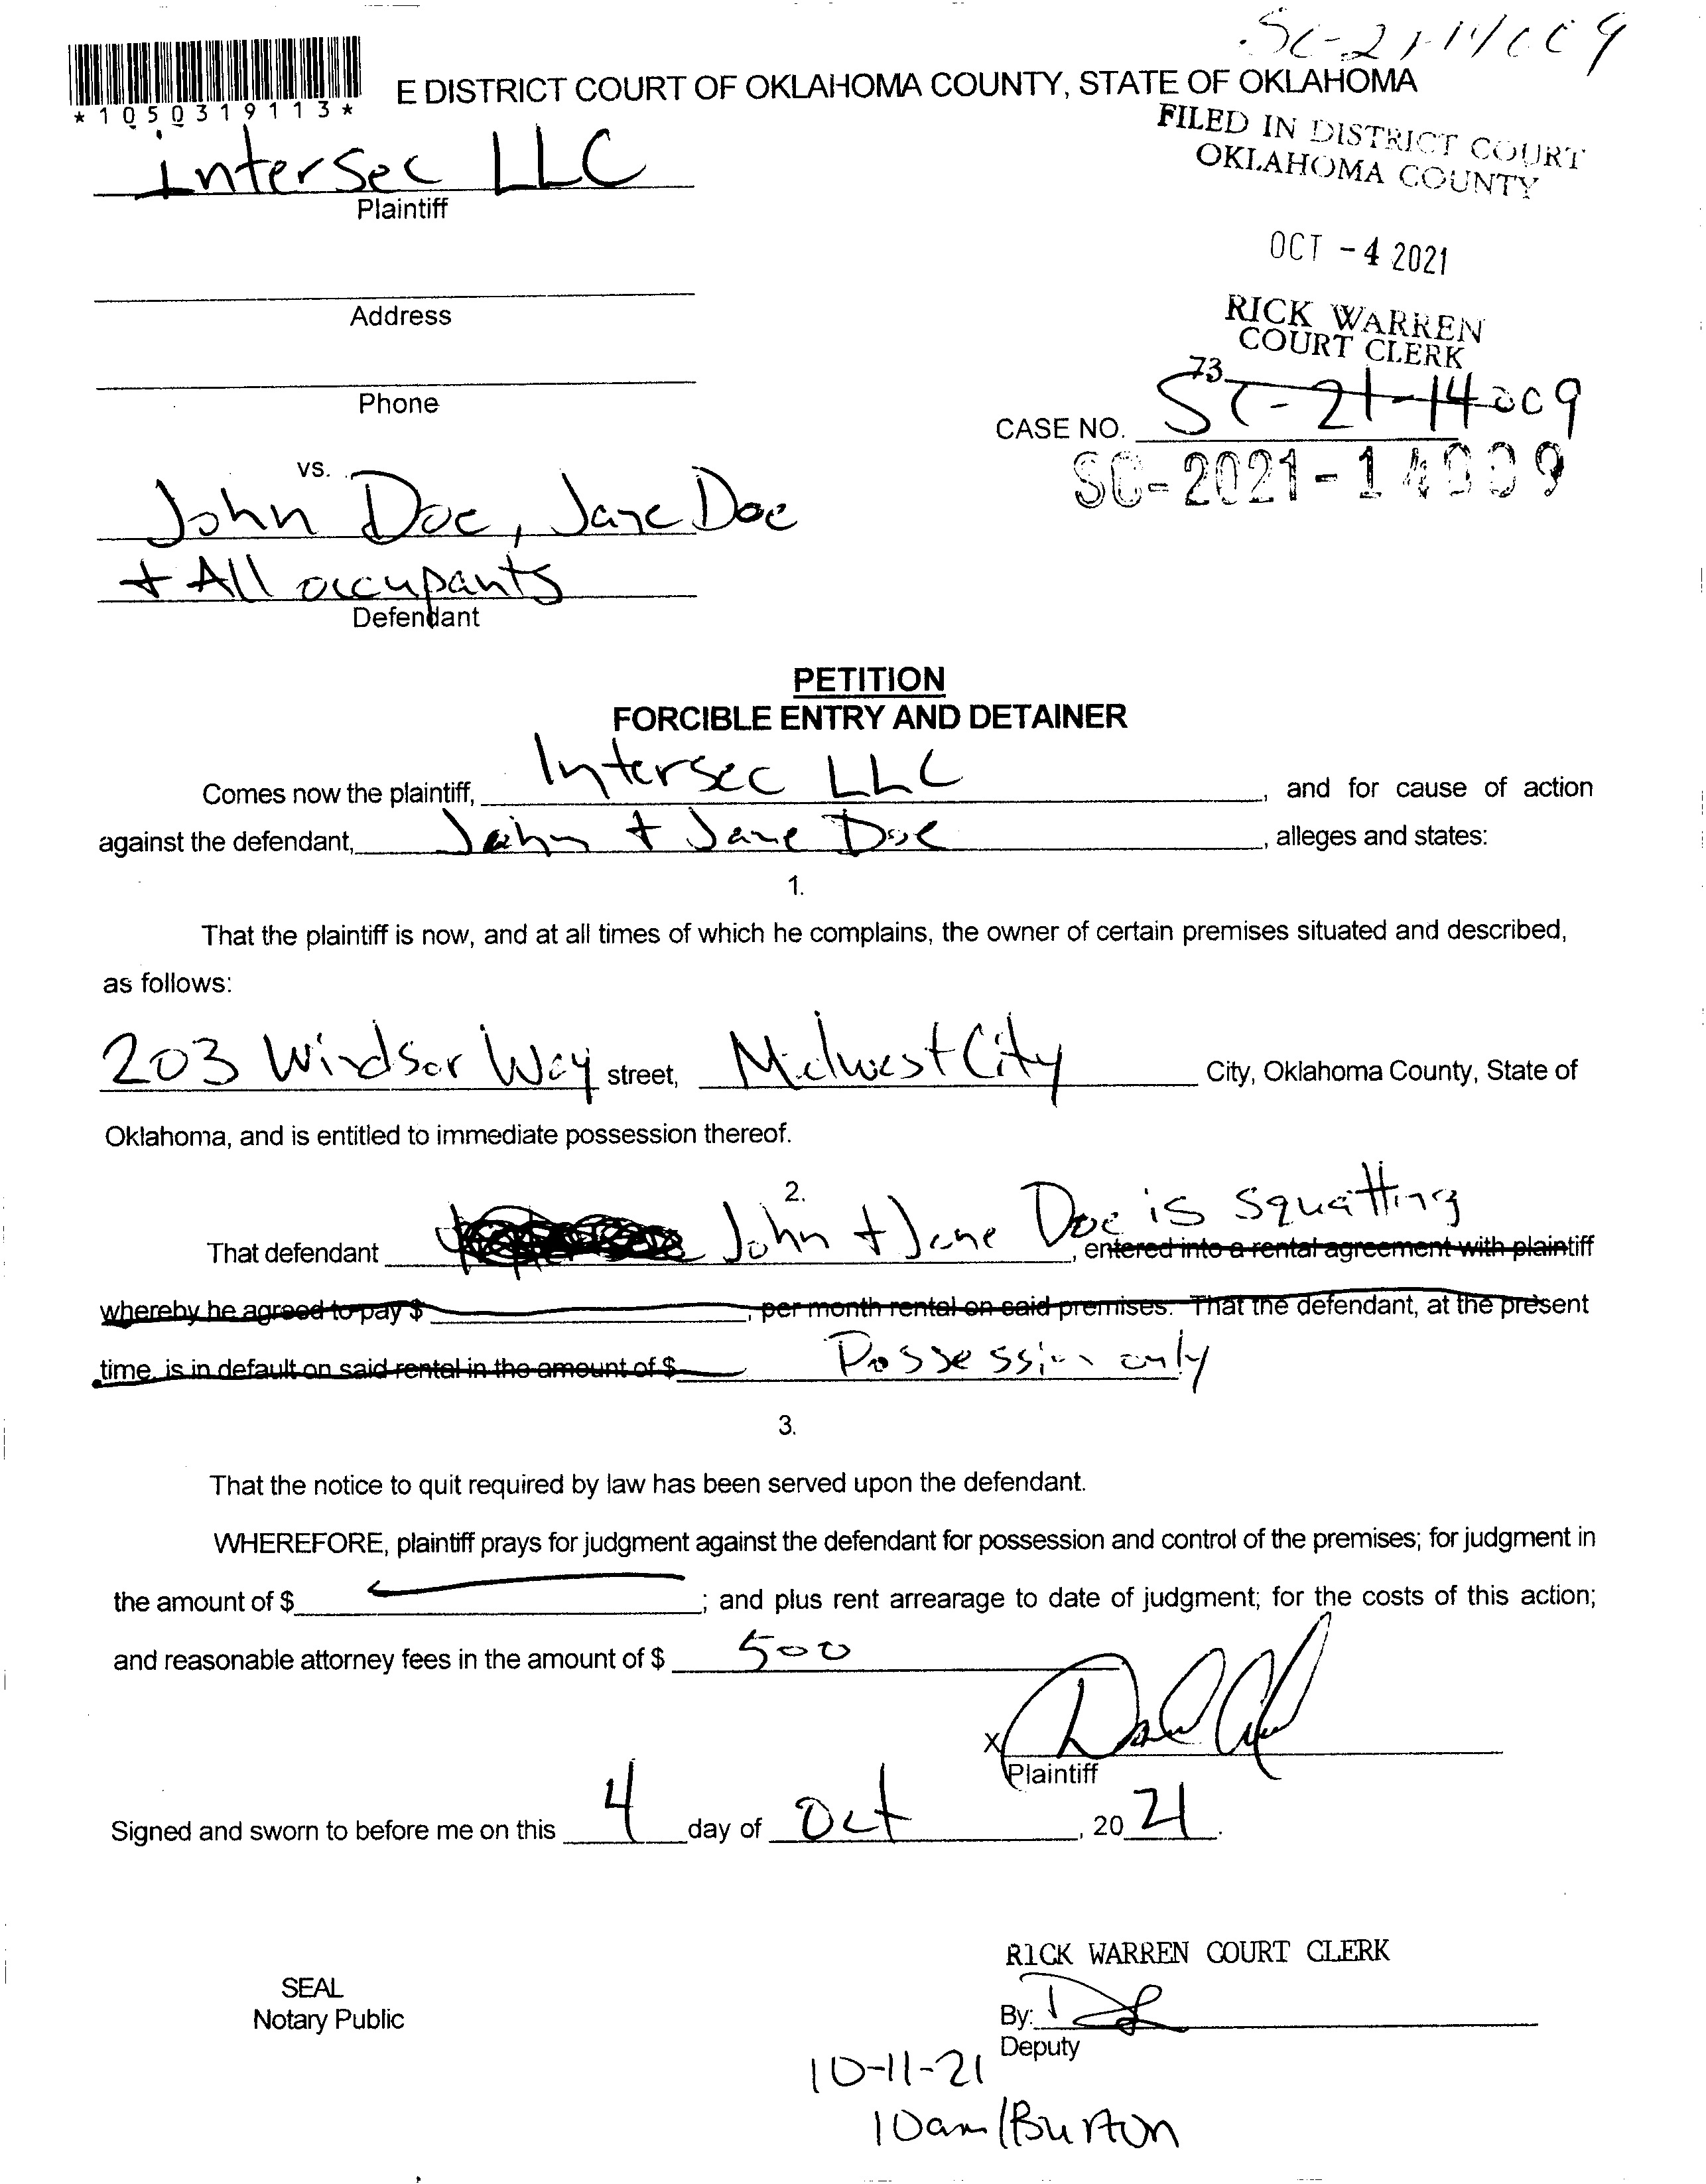 SC-21-14009
*1050319113*
E DISTRICT COURT OF OKLAHOMA COUNTY, STATE OF OKLAHOMA
FILED IN DISTRICT COURT
OKLAHOMA COUNTY
intersec LLC
Plaintiff
OCT -4 2021
Address
RICK WARREN
COURT CLERK
73
Phone
CASE NO. SC-21-14009
SC-2021-14009
vs.
John Doe, Jane Doe
+ All occupants
Defendant
PETITION
FORCIBLE ENTRY AND DETAINER
Comes now the plaintiff, Intersec LLC, and for cause of action
against the defendant, John + Jane Doe, alleges and states:
1.
That the plaintiff is now, and at all times of which he complains, the owner of certain premises situated and described,
as follows:
203 Windsor Way street, Midwest City City, Oklahoma County, State of
Oklahoma, and is entitled to immediate possession thereof.
2.
That defendant John + Jane Doe is squatting, entered into a rental agreement with plaintiff
whereby he agreed to pay $, per month rental on said premises. That the defendant, at the present
time, is in default on said rental in the amount of $ Possession only
3.
That the notice to quit required by law has been served upon the defendant.
WHEREFORE, plaintiff prays for judgment against the defendant for possession and control of the premises; for judgment in
the amount of $; and plus rent arrearage to date of judgment; for the costs of this action;
and reasonable attorney fees in the amount of $ 500
X
Plaintiff
Signed and sworn to before me on this 4 day of Oct, 20 21.
RICK WARREN COURT CLERK
SEAL
Notary Public
By:
Deputy
10-11-21
10am/Burton